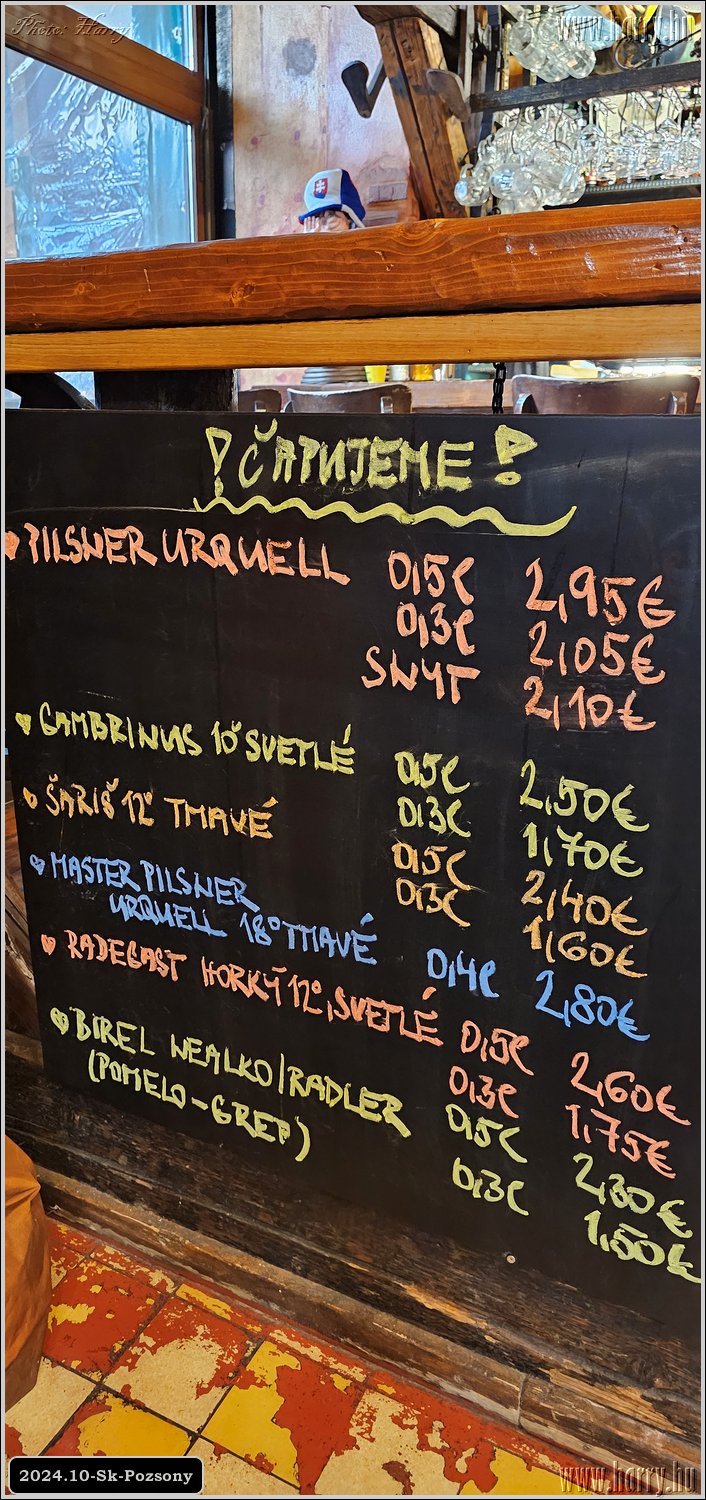 Photo: Harry
www.harry.hu
! ČAPUJEME !
PILSNER URQUELL 0,5l 2,95€
0,3l 2,05€
SNYT 2,10€
GAMBRINUS 10° SVETLÉ 0,5l 2,50€
0,3l 1,70€
ŠARIŠ 12° TMAVÉ 0,5l 2,40€
0,3l 1,60€
MASTER PILSNER
URQUELL 18° TMAVÉ 0,4l 2,80€
RADEGAST HORKÝ 12°, SVETLÉ 0,5l 2,60€
0,3l 1,75€
BIREL NEALKO/RADLER 0,5l 2,30€
(POMELO-GREP) 0,3l 1,50€
2024.10-Sk-Pozsony
www.harry.hu